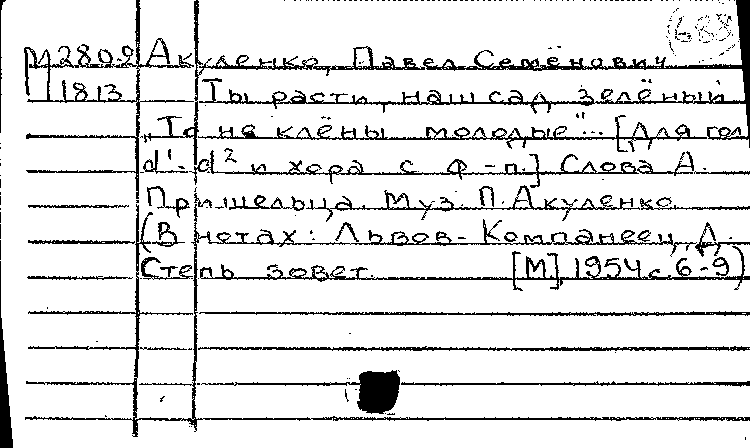 (688)
М 280-2 Акуленко, Павел Семёнович
1813 Ты расти, наш сад зелёный
"То не клёны молодые"... [Для гол.
d¹-d² и хора с ф-п.] Слова А.
Пришельца. Муз. П. Акуленко.
(В нотах: Львов-Компанеец, Д.
Степь зовет. [М], 1954 с. 6-9)